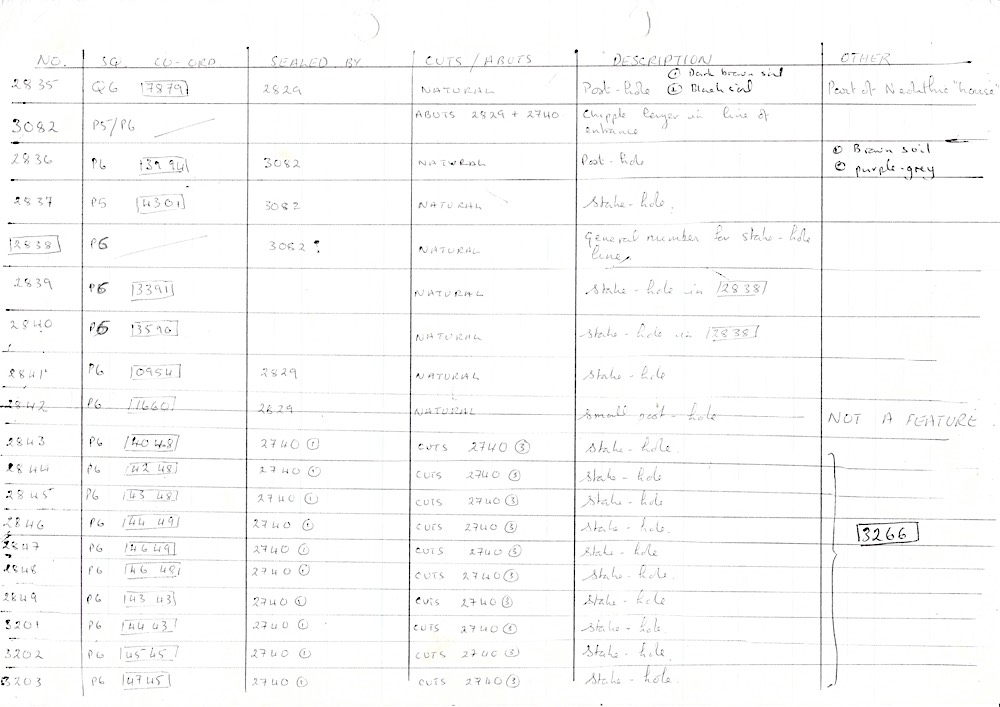 NO. SQ. CO-ORD SEALED BY CUTS / ABUTS DESCRIPTION OTHER
2835 Q6 7879 2829 NATURAL Post-hole ① Dark brown soil ② Black soil Part of Neolithic "house"
3082 P5/P6 ABUTS 2829 + 2740 Chipple layer in line of entrance
2836 P6 3994 3082 NATURAL Post-hole ① Brown soil ② purple-grey
2837 P5 4301 3082 NATURAL Stake-hole.
2838 P6 3082 NATURAL General number for stake-hole line
2839 P6 3391 NATURAL Stake-hole in 2838
2840 P6 3590 NATURAL Stake-hole in 2838
2841 P6 0954 2829 NATURAL Stake-hole
2842 P6 1660 2829 NATURAL Small post-hole NOT A FEATURE.
2843 P6 4048 2740 ① CUTS 2740 ③ Stake-hole.
2844 P6 42 48 2740 ① CUTS 2740 ③ Stake-hole
2845 P6 43 48 2740 ① CUTS 2740 ③ Stake-hole
2846 P6 44 49 2740 ① CUTS 2740 ③ Stake-hole. 3266
2847 P6 4649 2740 ① CUTS 2740 ③ Stake-hole
2848 P6 46 48 2740 ① CUTS 2740 ③ Stake-hole.
2849 P6 43 43 2740 ① CUTS 2740 ③ Stake-hole
3201 P6 44 43 2740 ① CUTS 2740 Stake-hole.
3202 P6 4545 2740 ① CUTS 2740 ③ Stake-hole.
3203 P6 4745 2740 ① CUTS 2740 ③ Stake-hole.